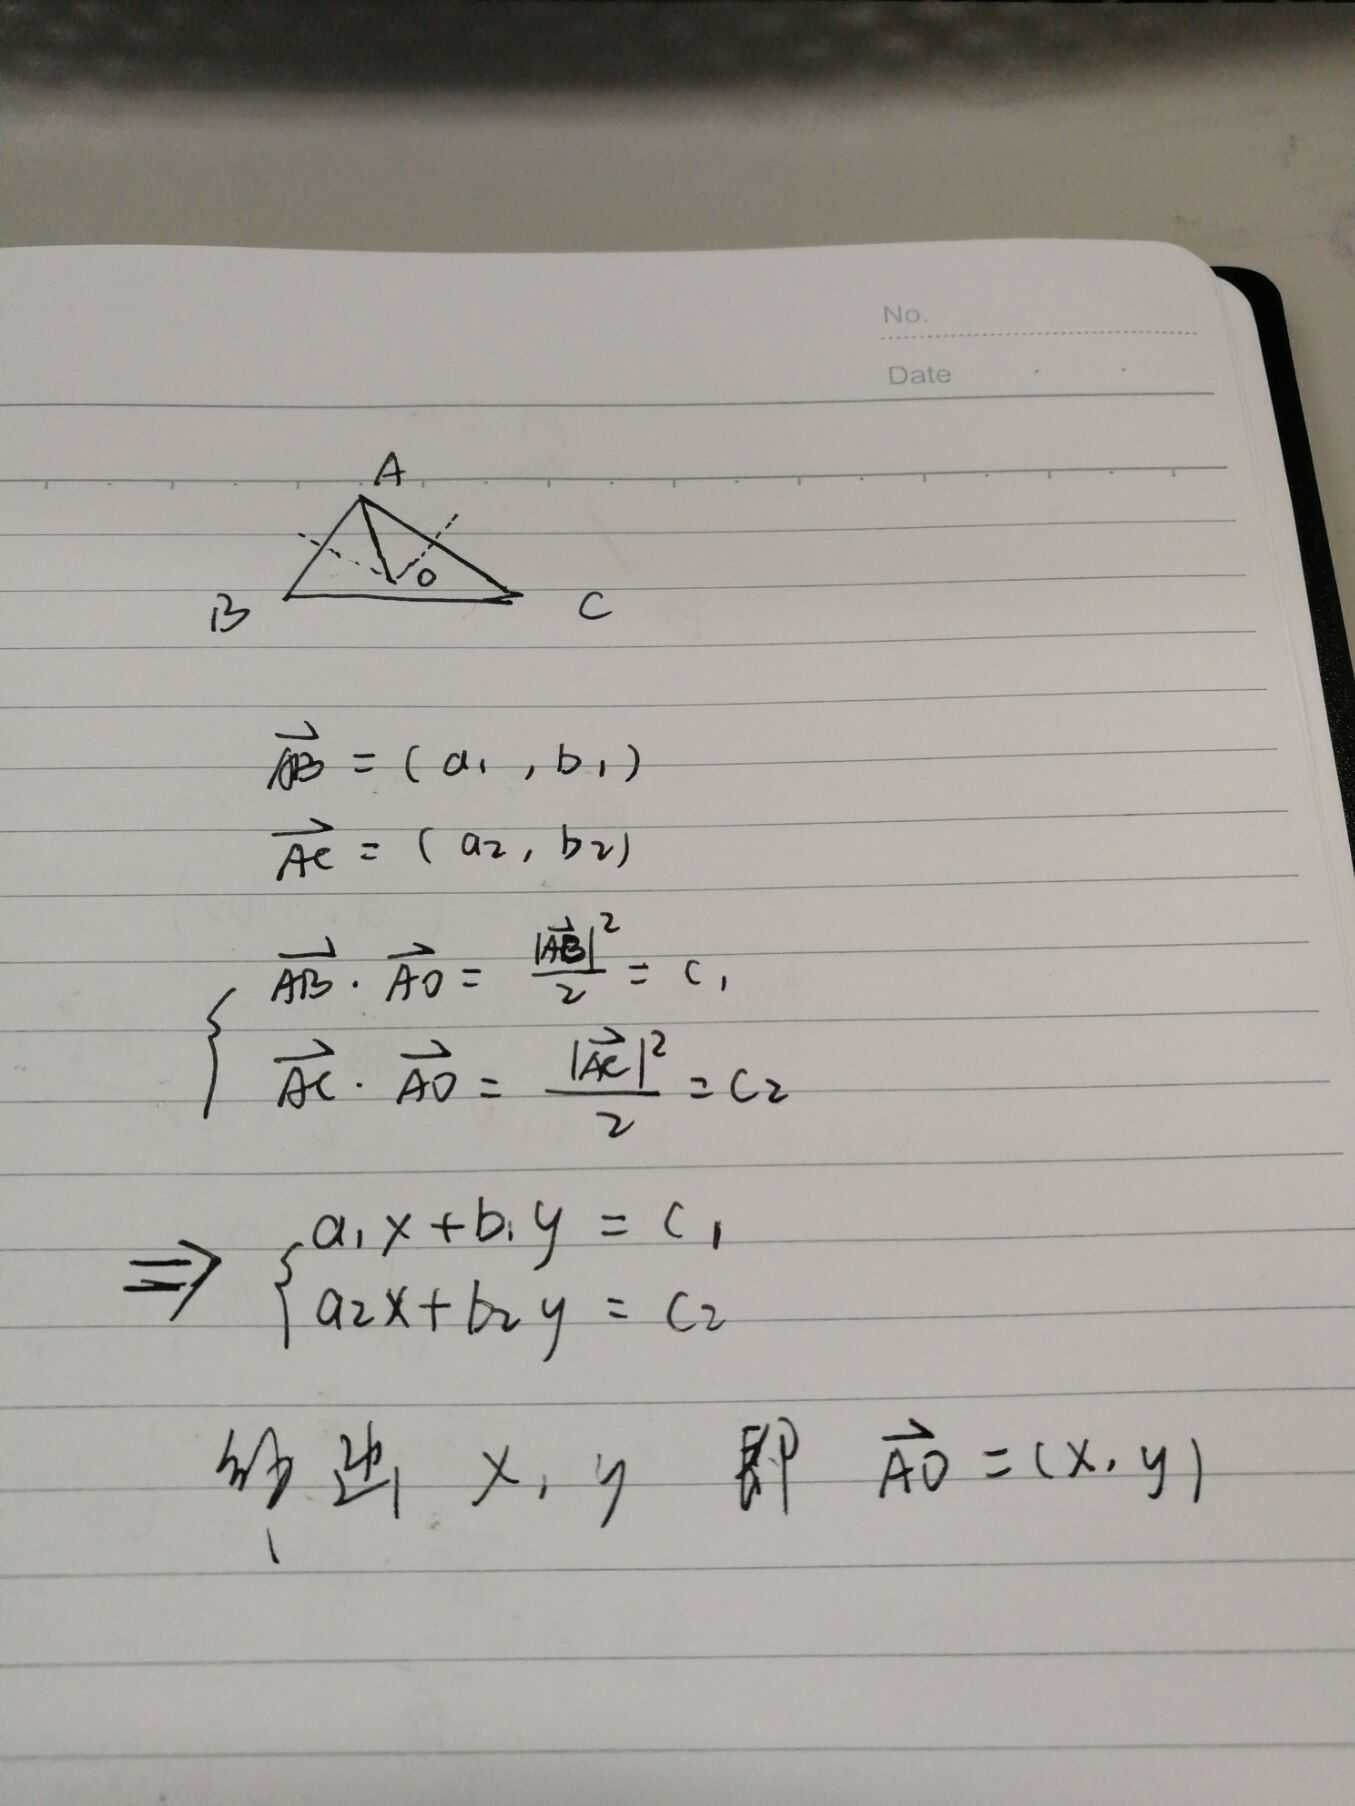 No.
Date
A
O
B C
$\overrightarrow{AB} = (a_1, b_1)$
$\overrightarrow{AC} = (a_2, b_2)$
$\overrightarrow{AB} \cdot \overrightarrow{AO} = \frac{|\overrightarrow{AB}|^2}{2} = c_1$
$\overrightarrow{AC} \cdot \overrightarrow{AO} = \frac{|\overrightarrow{AC}|^2}{2} = c_2$
$\Rightarrow \{ a_1x + b_1y = c_1$
$a_2x + b_2y = c_2$
解出 x, y 即 $\overrightarrow{AO} = (x, y)$